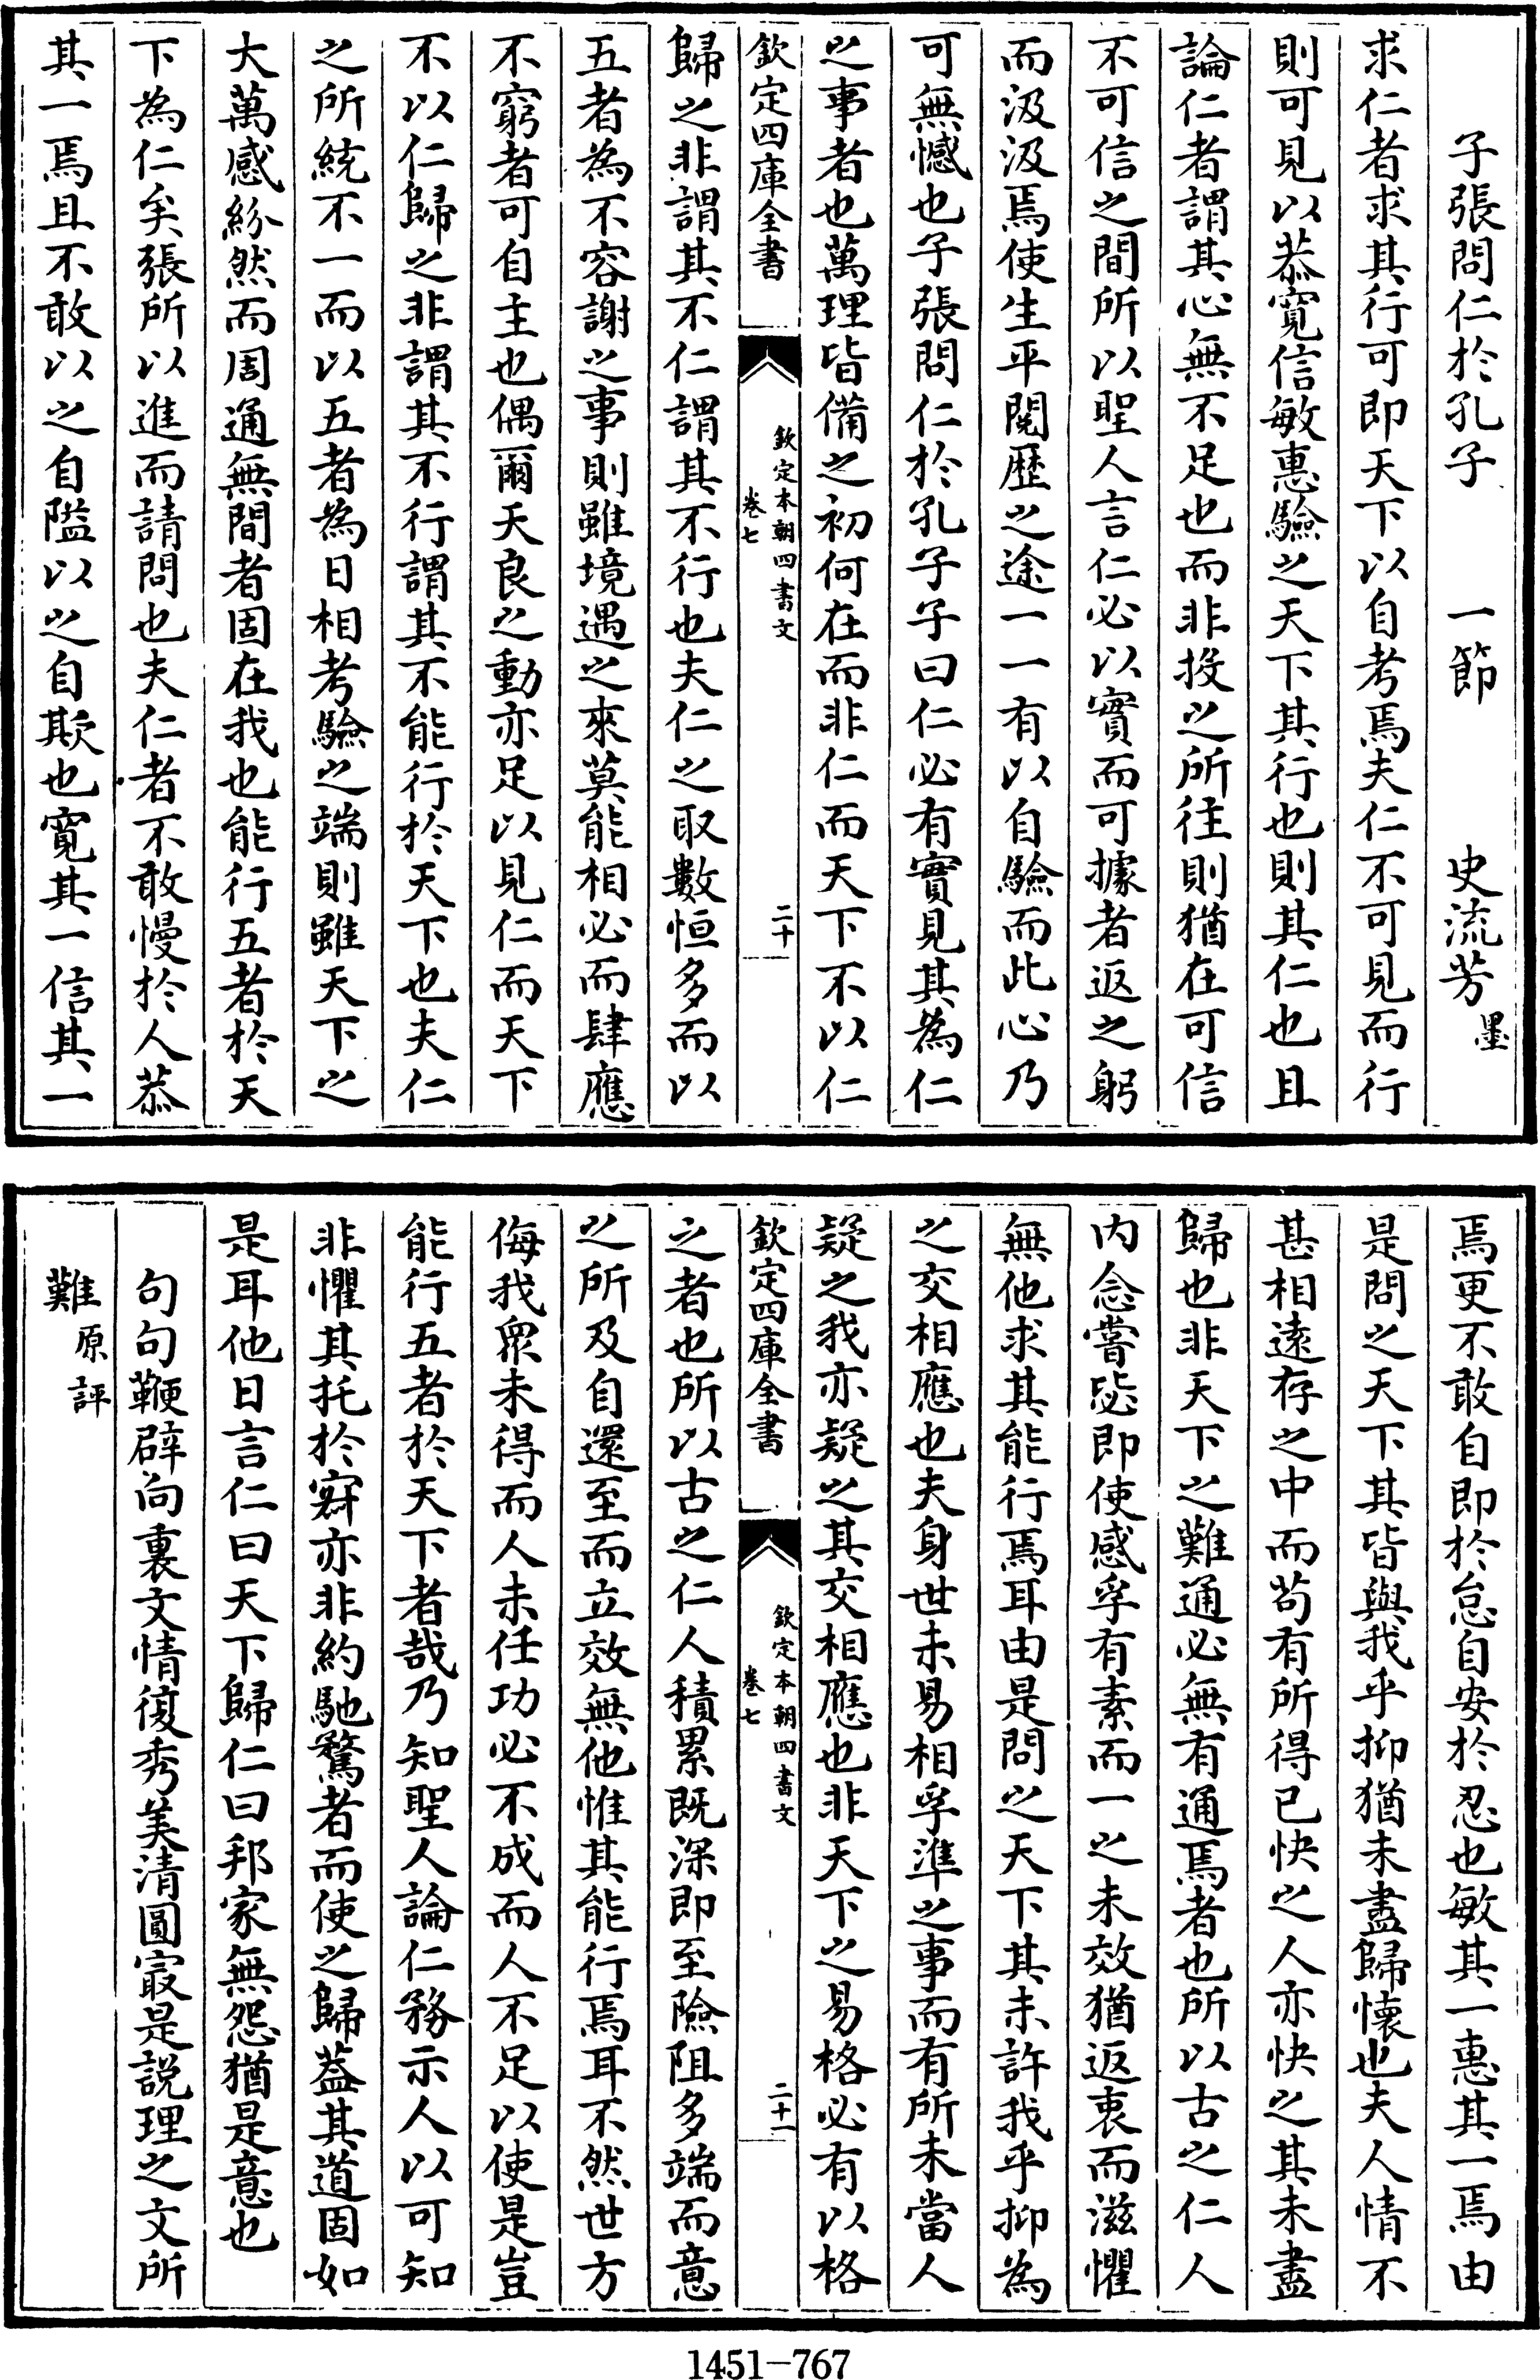 子張問仁於孔子　一節　史流芳墨
求仁者求其行可即天下以自考焉夫仁不可見而行
則可見以恭寬信敏惠驗之天下其行也則其仁也且
論仁者謂其心無不足也而非投之所往則猶在可信
不可信之間所以聖人言仁必以實而可據者返之躬
而汲汲焉使生平閱歷之途一一有以自驗而此心乃
可無憾也子張問仁於孔子子曰仁必有實見其為仁
之事者也萬理皆備之初何在而非仁而天下不以仁
欽定四庫全書
欽定本朝四書文
卷七
二十
歸之非謂其不仁謂其不行也夫仁之取數恒多而以
五者為不容謝之事則雖境遇之來莫能相必而肆應
不窮者可自主也偶爾天良之動亦足以見仁而天下
不以仁歸之非謂其不行謂其不能行於天下也夫仁
之所統不一而以五者為日相考驗之端則雖天下之
大萬感紛然而周通無間者固在我也能行五者於天
下為仁矣張所以進而請問也夫仁者不敢慢於人恭
其一焉且不敢以之自隘以之自欺也寬其一信其一
焉更不敢自即於怠自安於忍也敏其一惠其一焉由
是問之天下其皆與我乎抑猶未盡歸懷也夫人情不
甚相遠存之中而苟有所得已快之人亦快之其未盡
歸也非天下之難通必無有通焉者也所以古之仁人
內念嘗毖即使感孚有素而一之未效猶返衷而滋懼
無他求其能行焉耳由是問之天下其未許我乎抑為
之交相應也夫身世未易相孚準之事而有所未當人
疑之我亦疑之其交相應也非天下之易格必有以格
欽定四庫全書
欽定本朝四書文
卷七
二十一
之者也所以古之仁人積累既深即至險阻多端而意
之所及自還至而立效無他惟其能行焉耳不然世方
侮我眾未得而人未任功必不成而人不足以使是豈
能行五者於天下者哉乃知聖人論仁務示人以可知
非懼其托於寂亦非約馳騖者而使之歸葢其道固如
是耳他日言仁曰天下歸仁曰邦家無怨猶是意也
句句鞭辟向裏文情復秀美清圓㝡是說理之文所
難原評
1451-767